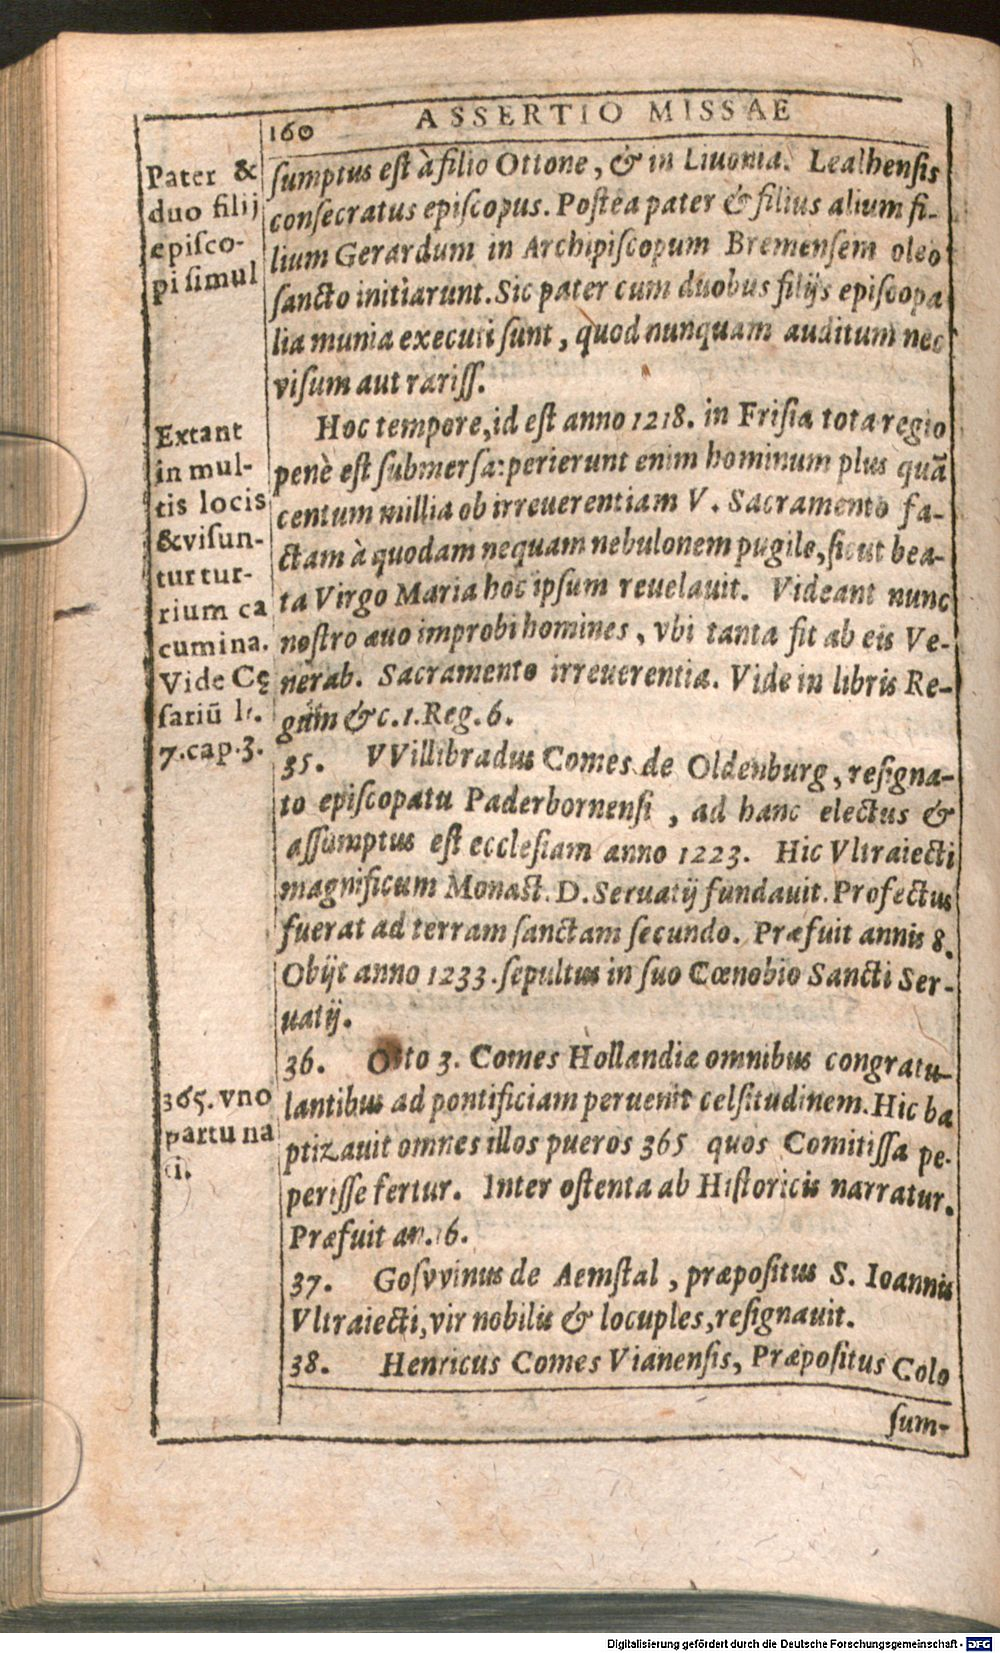 160 ASSERTIO MISSAE
Pater &
duo filij
episco-
pi simul
sumptus est à filio Ottone, & in Liuonia. Lealhensis
consecratus episcopus. Postea pater & filius alium fi-
lium Gerardum in Archipiscopum Bremensem oleo
sancto initiarunt. Sic pater cum duobus filijs episcopa
lia munia executi sunt, quod nunquam auditum nec
visum aut rariss.
Extant
in mul-
tis locis
& visun-
tur tur-
rium ca
cumina.
Vide Cę
sariū l.
7. cap. 3.
Hoc tempore, id est anno 1218. in Frisia tota regio
penè est submersa: perierunt enim hominum plus quā
centum millia ob irreuerentiam V. Sacramento fa-
ctam à quodam nequam nebulonem pugile, sicut bea-
ta Virgo Maria hoc ipsum reuelauit. Videant nunc
nostro æuo improbi homines, vbi tanta fit ab eis Ve-
nerab. Sacramento irreuerentia. Vide in libris Re-
gum &c. 1. Reg. 6.
35. VVillibradus Comes de Oldenburg, resigna-
to episcopatu Paderbornensi, ad hanc electus &
assumptus est ecclesiam anno 1223. Hic Vltraiecti
magnificum Monast. D. Seruatij fundauit. Profectus
fuerat ad terram sanctam secundo. Præfuit annis 8.
Obijt anno 1233. sepultus in suo Cœnobio Sancti Ser-
uatij.
365. vno
partu na
ti.
36. Otto 3. Comes Hollandiæ omnibus congratu-
lantibus ad pontificiam peruenit celsitudinem. Hic ba
ptizauit omnes illos pueros 365 quos Comitissa pe-
perisse fertur. Inter ostenta ab Historicis narratur.
Præfuit an. 16.
37. Gosvvinus de Aemstal, præpositus S. Ioannis
Vltraiecti, vir nobilis & locuples, resignauit.
38. Henricus Comes Vianensis, Præpositus Colo
sum-
Digitalisierung gefördert durch die Deutsche Forschungsgemeinschaft - DFG